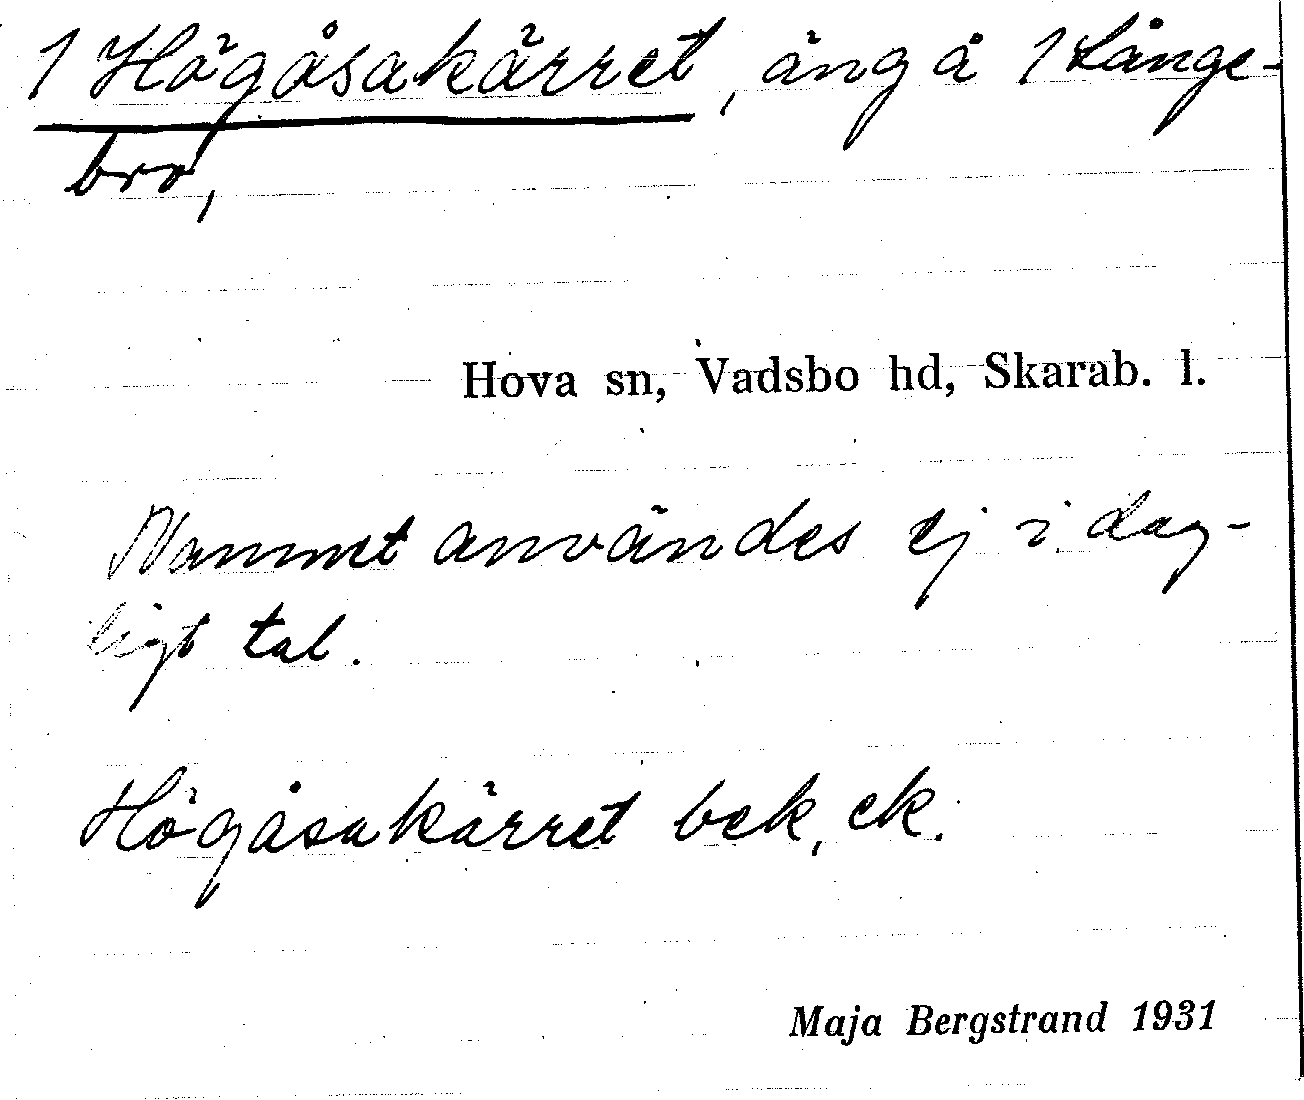 1 Högåsakärret, äng å 1 Långe-
bro,
Hova sn, Vadsbo hd, Skarab. l.
Namnet användes ej i dag-
ligt tal.
Högåsakärret bek, ek.
Maja Bergstrand 1931